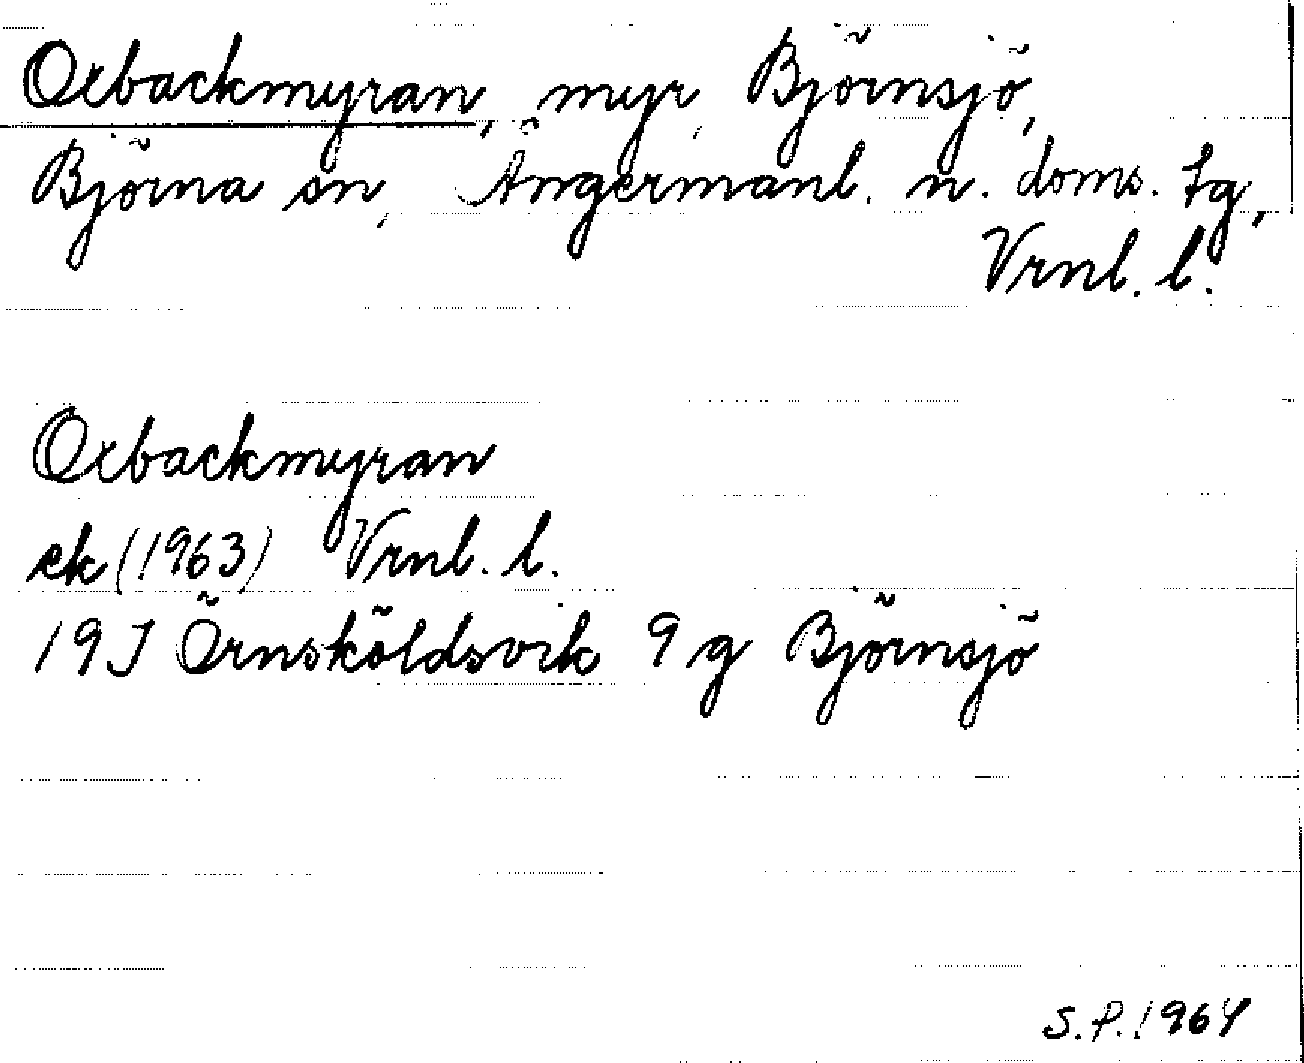 Oxbackmyran, myr, Björnsjö,
Björna sn, Ångermanl. n. doms. tg,
Vrnl. l.
Oxbackmyran
ek (1963) Vrnl. l.
19 J Örnsköldsvik 9 g Björnsjö
S.P. 1964